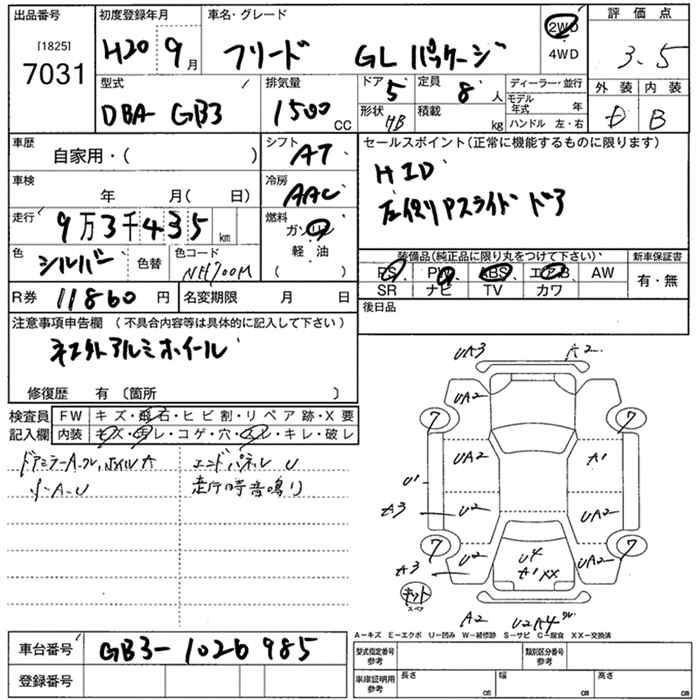 出品番号 [1825] 7031
初度登録年月 H20 9月
車名・グレード フリード GL パッケージ
2WD 4WD
評価点 3.5
外装 内装 D B
型式 DBA-GB3
排気量 1500 CC
ドア 5 定員 8人
形状 HB 積載 kg
ディーラー・並行
モデル年式 年
ハンドル 左・右
車歴 自家用・( )
シフト AT
セールスポイント(正常に機能するものに限ります)
HID
左側Pスライドドア
車検 年 月( 日)
冷房 AAC
走行 9万3千435 km
燃料 ガソリン 軽油 ( )
色 シルバー 色替 色コード NH700M
装備品(純正品に限り丸をつけて下さい)
PS PW ABS エアB AW
SR ナビ TV カワ
新車保証書 有・無
R券 11860円 名変期限 月 日
後日品
注意事項申告欄 (不具合内容等は具体的に記入して下さい)
社外アルミホイール
修復歴 有 〔箇所 〕
検査員記入欄 FW キズ・飛石・ヒビ割・リペア跡・X要
内装 キズ・汚レ・コゲ・穴・スレ・キレ・破レ
ドアミラーA・クレ,ホイルキ エンドパネル U
リーA・U 走行時音鳴り
UA3 A2
UA2
7 7
UA2 A1
U1
A3 U2 UA2
7 7
A3 U2 U4 A1 XX UA2
キット スペア
A2 U2 A4
A-キズ E-エクボ U-凹み W-補修跡 S-サビ C-腐食 XX-交換済
車台番号 GB3-1026985
登録番号
型式指定番号 参考 類別区分番号 参考
車庫証明用 参考 長さ cm 幅 cm 高さ cm